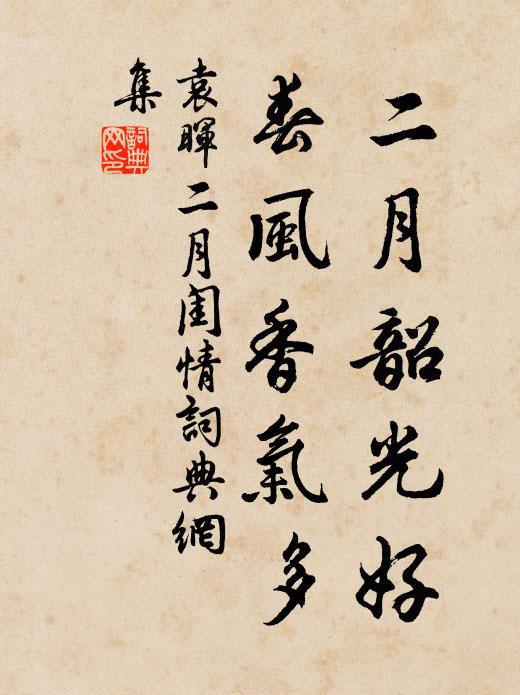 二月韶光好
春風香氣多
袁暉二月閨情詞典網
集
詞典
网印